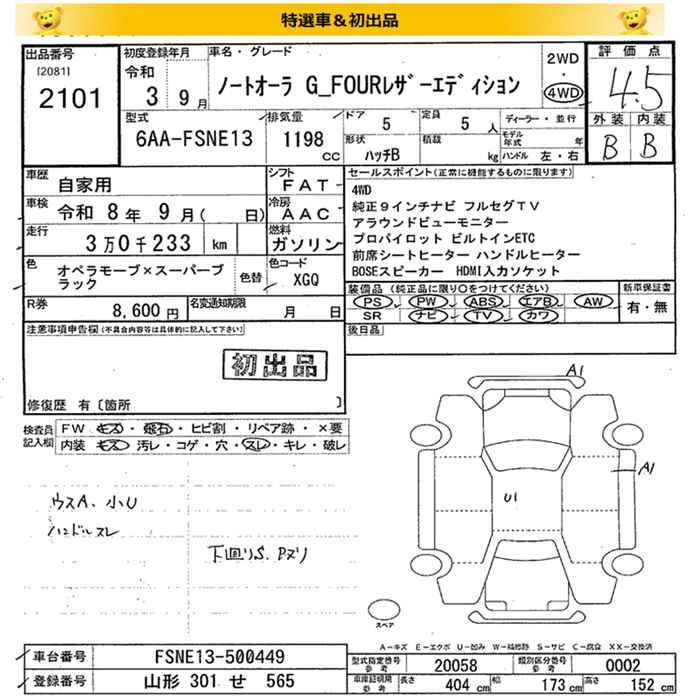 特選車＆初出品
出品番号
[2081]
2101
初度登録年月
令和
3 9月
車名・グレード
ノートオーラ G_FOURレザーエディション
2WD
・
4WD
評価点
4.5
外装 内装
B B
型式
6AA-FSNE13
排気量
1198
cc
ドア
5
定員
5人
形状
ハッチB
積載
kg
ディーラー・並行
モデル年式 年
ハンドル 左・右
車歴
自家用
車検
令和 8年 9月( 日)
走行
3万0千233 km
シフト
FAT
冷房
AAC
燃料
ガソリン
色
オペラモーブ×スーパーブ
ラック
色替
色コード
XGQ
R券
8,600円
名変通知期限
月 日
セールスポイント(正常に機能するものに限ります)
4WD
純正9インチナビ フルセグTV
アラウンドビューモニター
プロパイロット ビルトインETC
前席シートヒーター ハンドルヒーター
BOSEスピーカー HDMI入力ソケット
装備品 (純正品に限り○をつけてください)
PS PW ABS エアB AW
SR ナビ TV カワ
新車保証書
有・無
後日品
注意事項申告欄(不具合内容等は具体的に記入して下さい)
初出品
修復歴 有〔箇所 〕
検査員
記入欄
FW キズ・飛石・ヒビ割・リペア跡・×要
内装 キズ・汚レ・コゲ・穴・スレ・キレ・破レ
ウスA、小U
ハンドルスレ
下回りS、Pズリ
A1
A1
U1
スペア
A-キズ E-エクボ U-凹み W-補修跡 S-サビ C-腐食 XX-交換済
車台番号
FSNE13-500449
登録番号
山形 301 せ 565
型式指定番号
参考
20058
類別区分番号
参考
0002
車庫証明用
参考
長さ 404 cm
幅 173 cm
高さ 152 cm